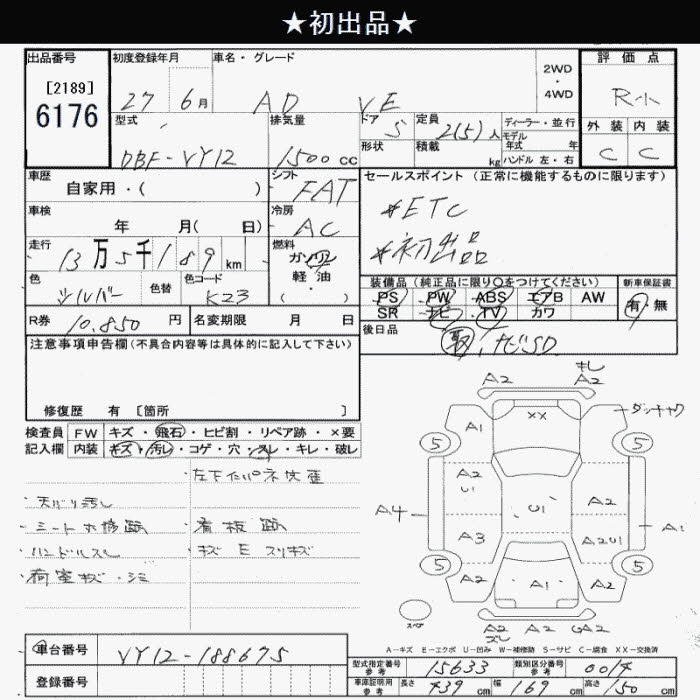 ★初出品★
出品番号 初度登録年月 車名・グレード 2WD・4WD 評価点
[2189]
6176
27 6月 AD VE R小
型式 排気量 ドア 定員 ディーラー・並行
DBF-VY12 1500cc 5 2(5)人 モデル年式 年
形状 積載 kg ハンドル 左・右
外装 内装
C C
車歴 シフト セールスポイント (正常に機能するものに限ります)
自家用・( ) FAT
車検 冷房 *ETC
年 月( 日) AC *初出品
走行 燃料
13万5千189km ガソリン 軽油 ・( )
色 色替 色コード
シルバー K23
装備品 (純正品に限り〇をつけてください) 新車保証書
PS PW ABS エアB AW 有・無
SR ナビ TV カワ
R券 10,850円 名変期限 月 日
後日品
取、ナビSD
注意事項申告欄(不具合内容等は具体的に記入して下さい)
修復歴 有 [箇所 ]
検査員 FW キズ・飛石・ヒビ割・リペア跡・×要
記入欄 内装 キズ・汚レ・コゲ・穴・スレ・キレ・破レ
・天バリ汚レ
・シート
・ハンドルスレ
・荷室キズ・
・左下
・看板跡
・キズ E スリキズ
A2 A2
A1 XX
5 5
A2 A2
U1
A4 U1 A1
A3 A2U1
5 5
A2 A1 A2
A2 A2 A2
スペア
A-キズ E-エクボ U-凹み W-補修跡 S-サビ C-腐食 XX-交換済
車台番号 VY12-188675
登録番号
型式指定番号 参考 15633 類別区分番号 参考 0014
車庫証明用 参考 長さ 439cm 幅 169cm 高さ 150cm